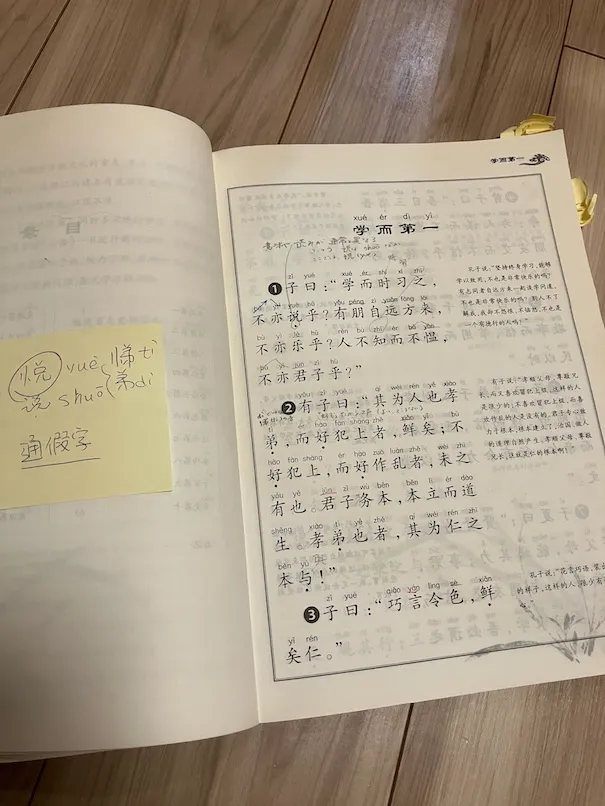 悦 yuè 悌 tì
说 shuō 弟 dì
通假字
学而第一
xué ér dì yī
学而第一
zǐ yuē xué ér shí xí zhī
❶子曰：“学而时习之，
不亦说乎？有朋自远方来，
bú yì lè hū rén bù zhī ér bú yùn
不亦乐乎？人不知而不愠，
bú yì jūn zǐ hū
不亦君子乎？”
yǒu zǐ yuē qí wéi rén yě xiào
❷有子曰：“其为人也孝
弟，而好犯上者，鲜矣；不
hào fàn shàng ér hào zuò luàn zhě wèi zhī
好犯上，而好作乱者，未之
yǒu yě jūn zǐ wù běn běn lì ér dào
有也。君子务本，本立而道
shēng xiào tì yě zhě qí wéi rén zhī
生。孝弟也者，其为仁之
běn yú
本与！”
zǐ yuē qiǎo yán lìng sè xiǎn
❸子曰：“巧言令色，鲜
yǐ rén
矣仁。”
孔子说：“坚持终身学习，能够
学以致用，不也是非常快乐的吗？
有志同者自远方来一起谈学问道，
不也是非常快乐的吗？别人不了
解我，我却不怨恨、不恼怒，不也是
一个有德行的人吗？”
有子说：“孝顺父母，尊敬兄
长，而又喜爱冒犯上级，这样的人
是很少的；不喜欢冒犯上级，而喜
欢作乱的人是没有的。君子专心致
力于根本，根本建立了，治国、做人
的道理自然产生。孝顺父母，尊敬
兄长，这就是仁的根本啊！”
孔子说：“花言巧语，装出
的样子，这样的人，很少有